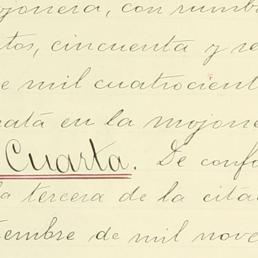 ojonera, con rumb
tos, cincuenta y se
e mil cuatrocient
ratá en la mojone
Cuarta. De confo
la tercera de la cita
tiembre de mil nove